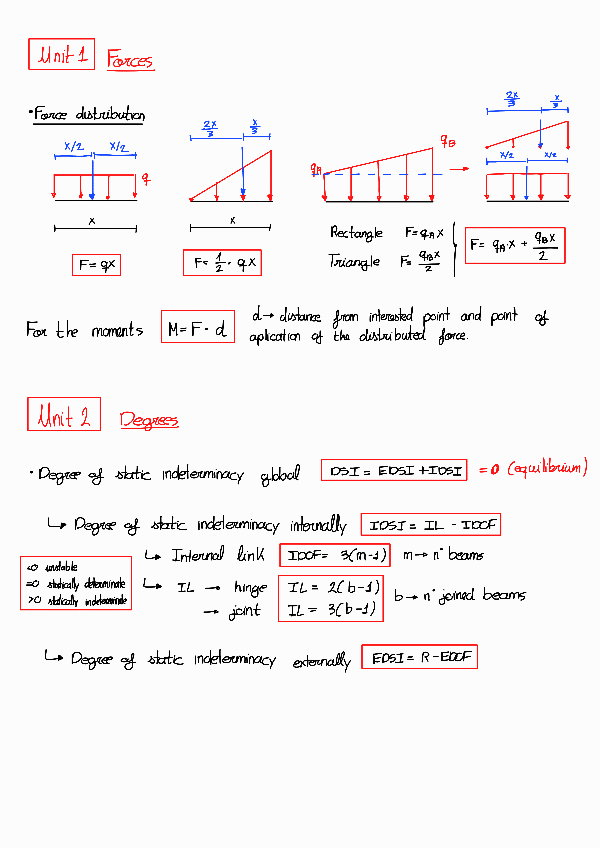 Unit 1 Forces
• Force distribution
x/2 x/2 q x
F = qx
2x/3 x/3 x
F = 1/2 · qx
qA qB
2x/3 x/3
x/2 x/2
Rectangle F = qA x
Triangle F = qB x/2
F = qA · x + qB x/2
For the moments M = F · d d → distance from interested point and point of
aplication of the distributed force.
Unit 2 Degrees
• Degree of static indeterminacy global DSI = EDSI + IDSI = 0 (equilibrium)
↳ Degree of static indeterminacy internally IDSI = IL - IDOF
↳ Internal link IDOF = 3(m-1) m → n° beams
<0 unstable
=0 statically determinate
>0 statically indeterminate
↳ IL → hinge IL = 2(b-1)
→ joint IL = 3(b-1)
b → n° joined beams
↳ Degree of static indeterminacy externally EDSI = R - EDOF